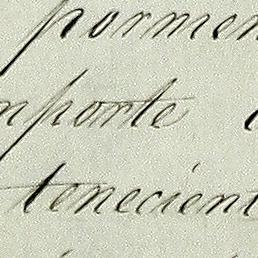 pormen
mporte
tenecient